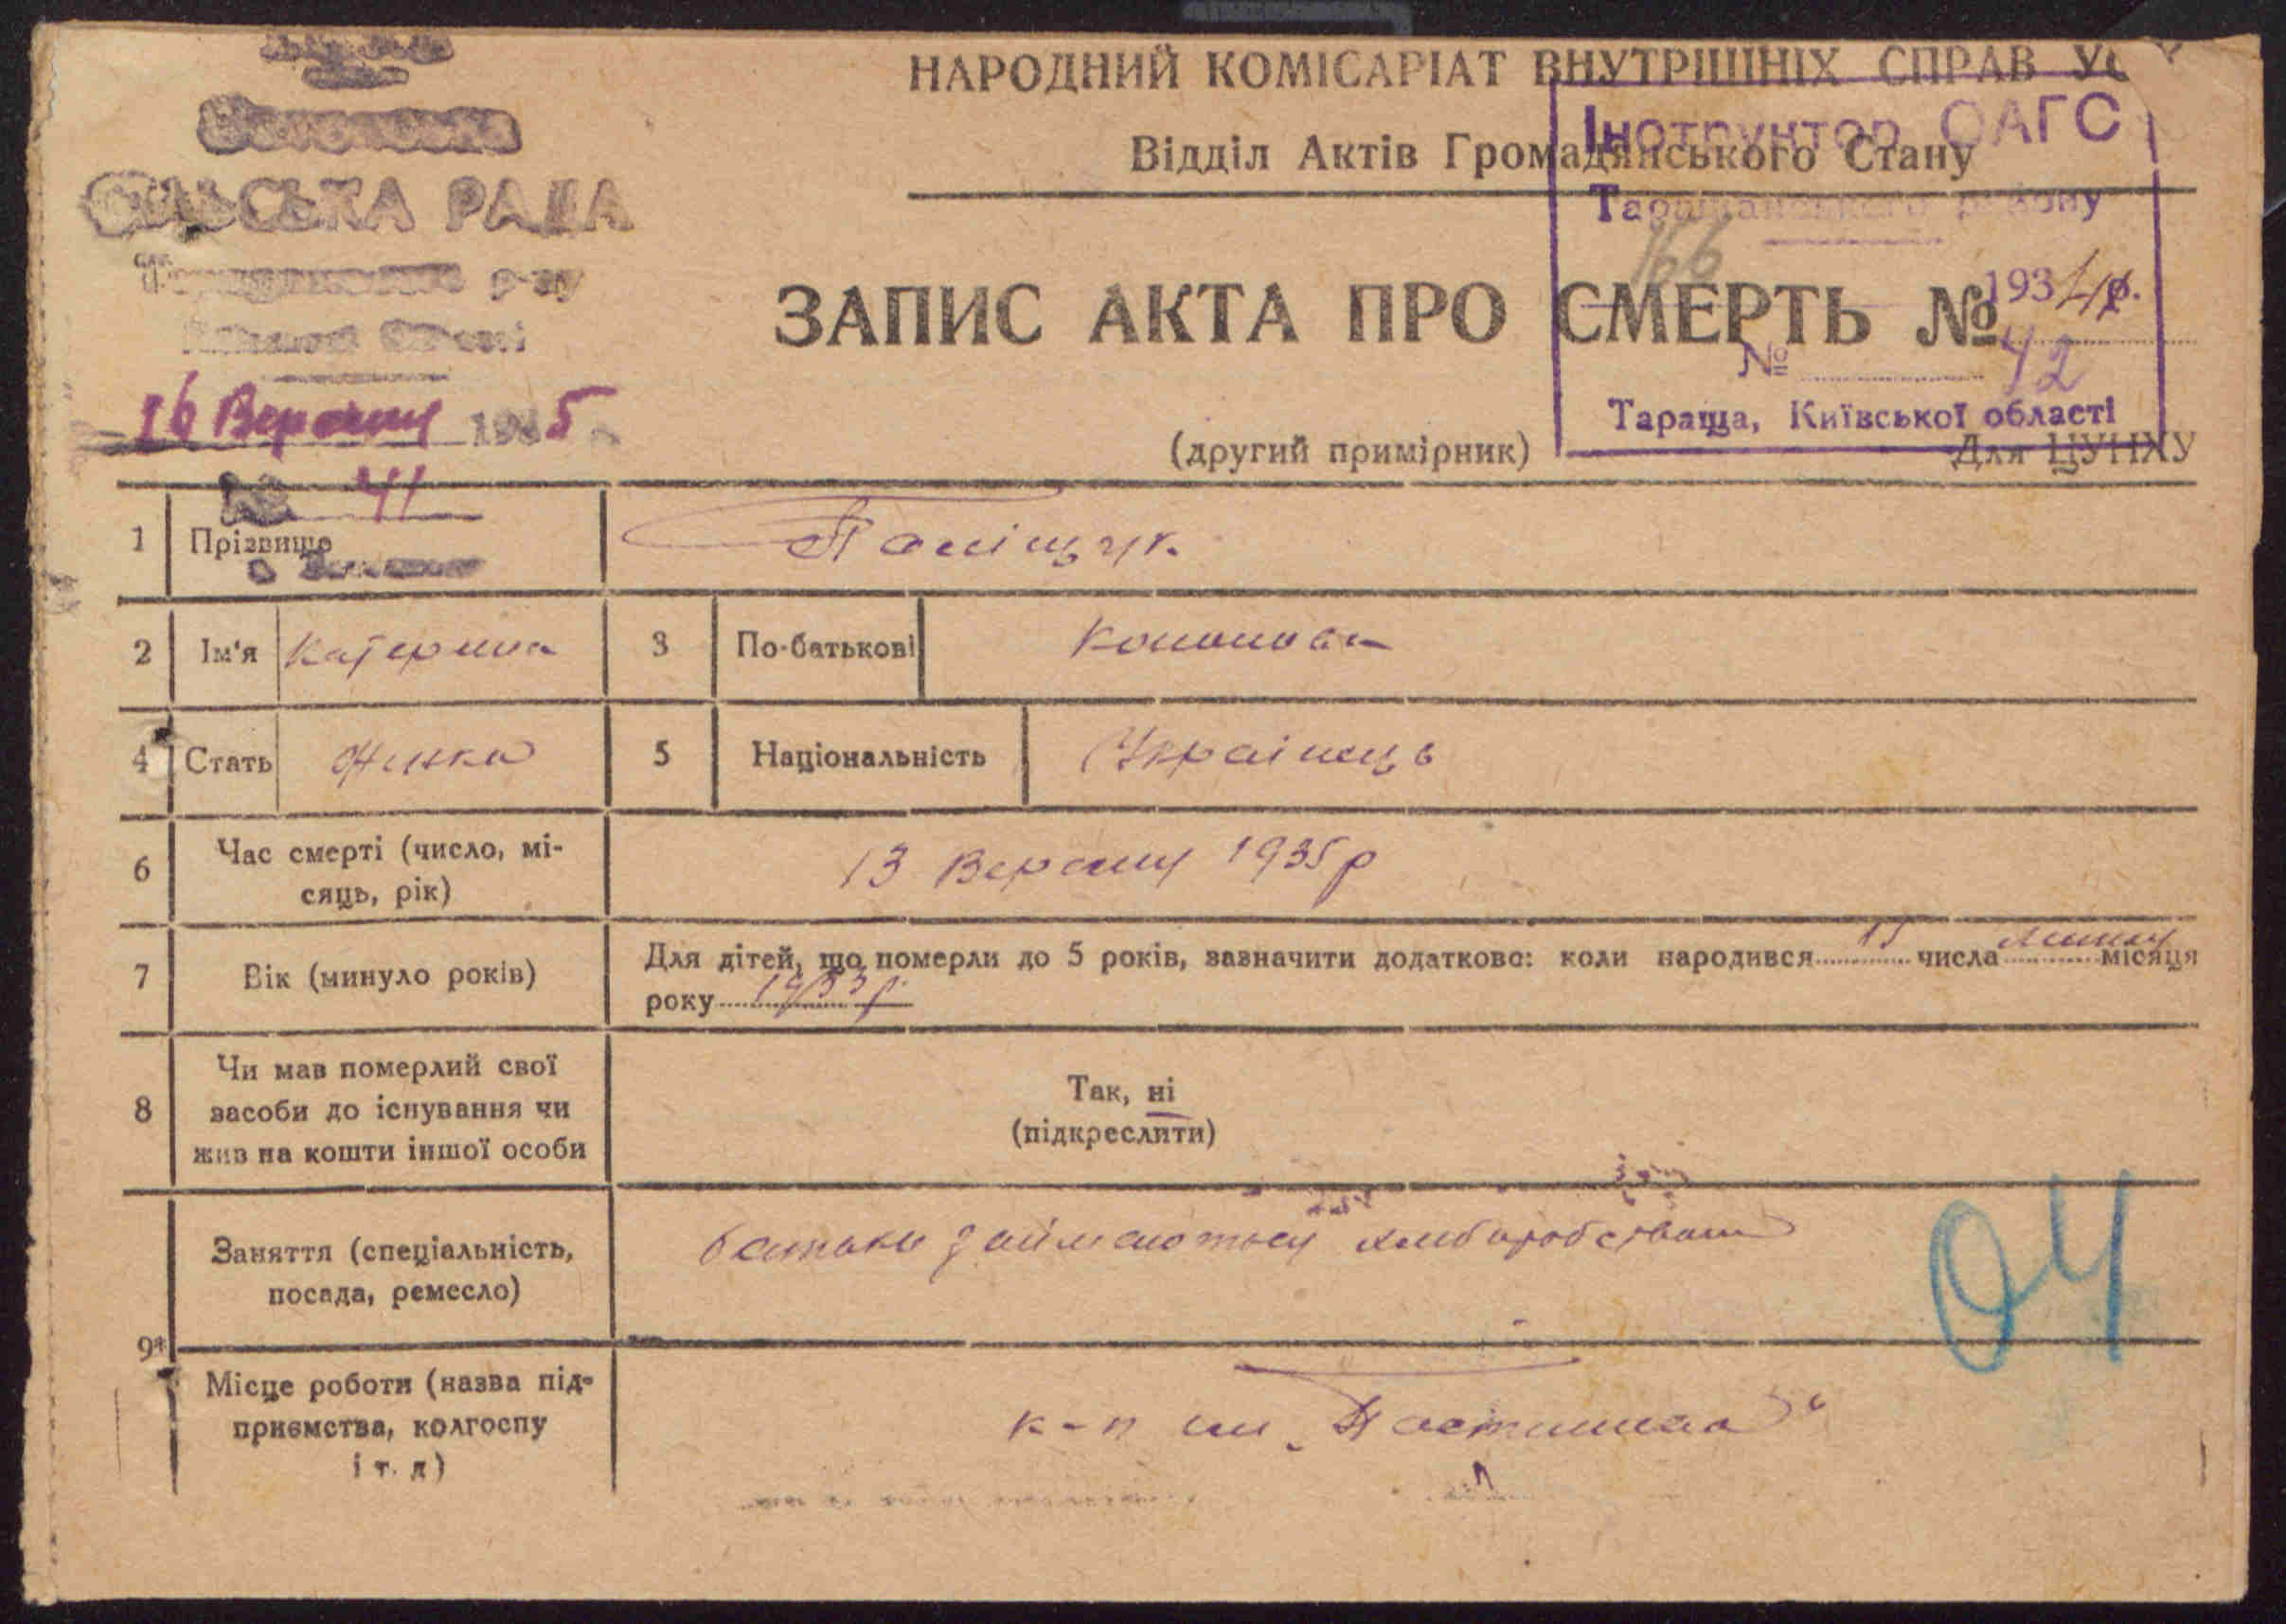 НАРОДНИЙ КОМІСАРІАТ ВНУТРІШНІХ СПРАВ
Відділ Актів Громадянського Стану
СІЛЬСЬКА РАДА
р-ну
16 Вересня 1935
№ 41
Інструктор ОАГС
Таращанського району
166
193
№ 42
Тараща, Київської області
ЗАПИС АКТА ПРО СМЕРТЬ №
(другий примірник)
Для ЦУНХУ
1 Прізвище
2 Ім'я Катерина 3 По-батькові Кононовна
4 Стать Жінка 5 Національність Українець
6 Час смерті (число, мі-
сяць, рік) 13 Вересня 1935 р
7 Вік (минуло років) Для дітей, що померли до 5 років, зазначити додатково: коли народився 15 числа місяця
року 1933 р.
8 Чи мав померлий свої
засоби до існування чи
жив на кошти іншої особи
Так, ні
(підкреслити)
9* Заняття (спеціальність,
посада, ремесло) батьки займаються хліборобством
04
Місце роботи (назва під-
приємства, колгоспу
і т. д) к-п ім. „Постишева“